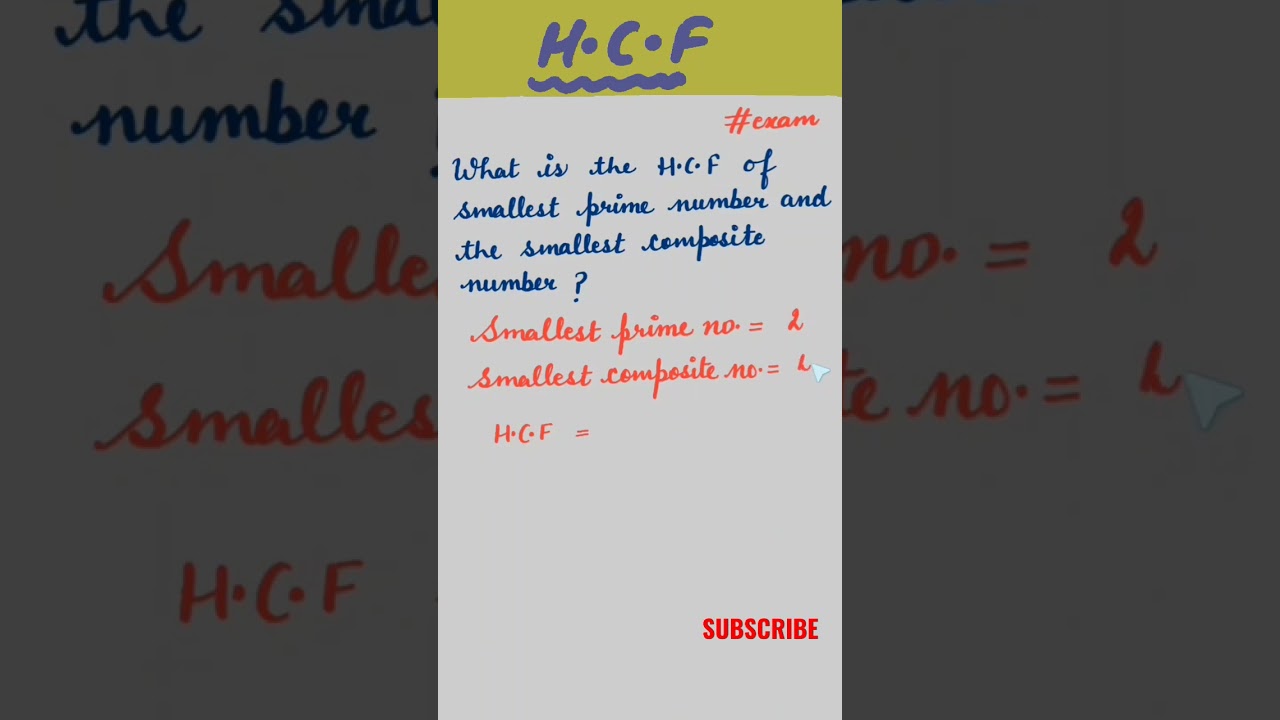 H.C.F
#exam
What is the H.C.F of
smallest prime number and
the smallest composite
number ?
Smallest prime no. = 2
Smallest composite no. =
H.C.F =
SUBSCRIBE